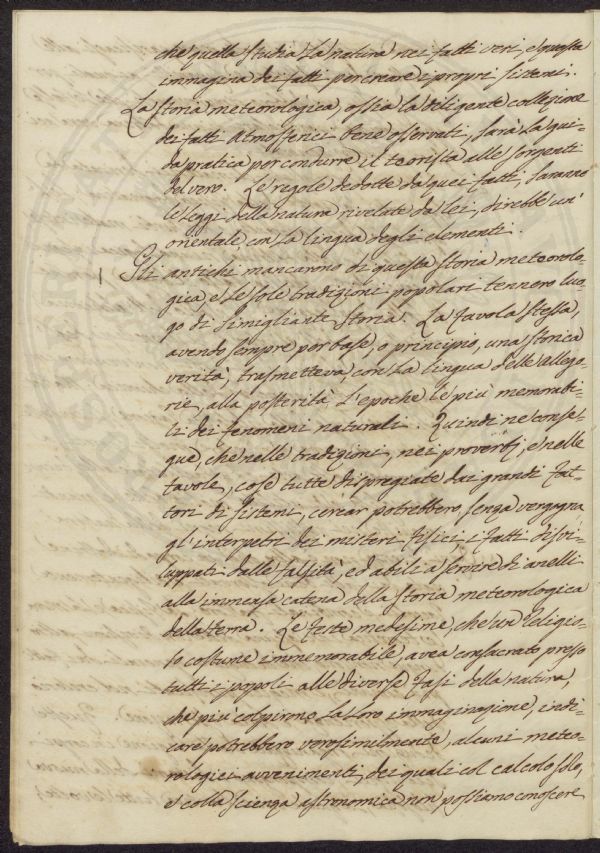 che quella studia la natura nei fatti veri, e questa
immagina dei fatti per creare i propri sistemi.
La storia meteorologica, ossia la diligente collezione
dei fatti Atmosferici bene osservati, sarà la gui-
da pratica per condurre il teorista alle sorgenti
del vero. Le regole dedotte da quei fatti, saranno
le leggi della natura rivelate da lei, direbbe un'
orientale con la lingua degli elementi.
Gli antichi mancarono di questa storia meteorolo-
gica, e le sole tradizioni popolari tennero luo-
go di simigliante storia. La favola stessa,
avendo sempre per base, o principio, una storica
verità, trasmetteva, con la lingua delle allego-
rie, alla posterità l'epoche le più memorabi-
li dei fenomeni naturali. Quindi ne conse-
gue, che nelle tradizioni, nei proverbj, e nelle
favole, cose tutte dispregiate dai grandi fat-
tori di sistemi, cercar potrebbero, senza vergogna
gl'interpetri dei misteri fisici i fatti disvi-
luppati dalle falsità, ed abili a servire di anelli
alla immensa catena della storia meteorologica
della terra. Le feste medesime, che un religio-
so costume immemorabile, avea consacrato presso
tutti i popoli alle diverse fasi della natura,
che più colpirono la loro immaginazione, indi-
care potrebbero verosimilmente, alcuni meteo-
rologici avvenimenti, dei quali col calcolo solo,
e colla scienza astronomica non possiamo conoscere